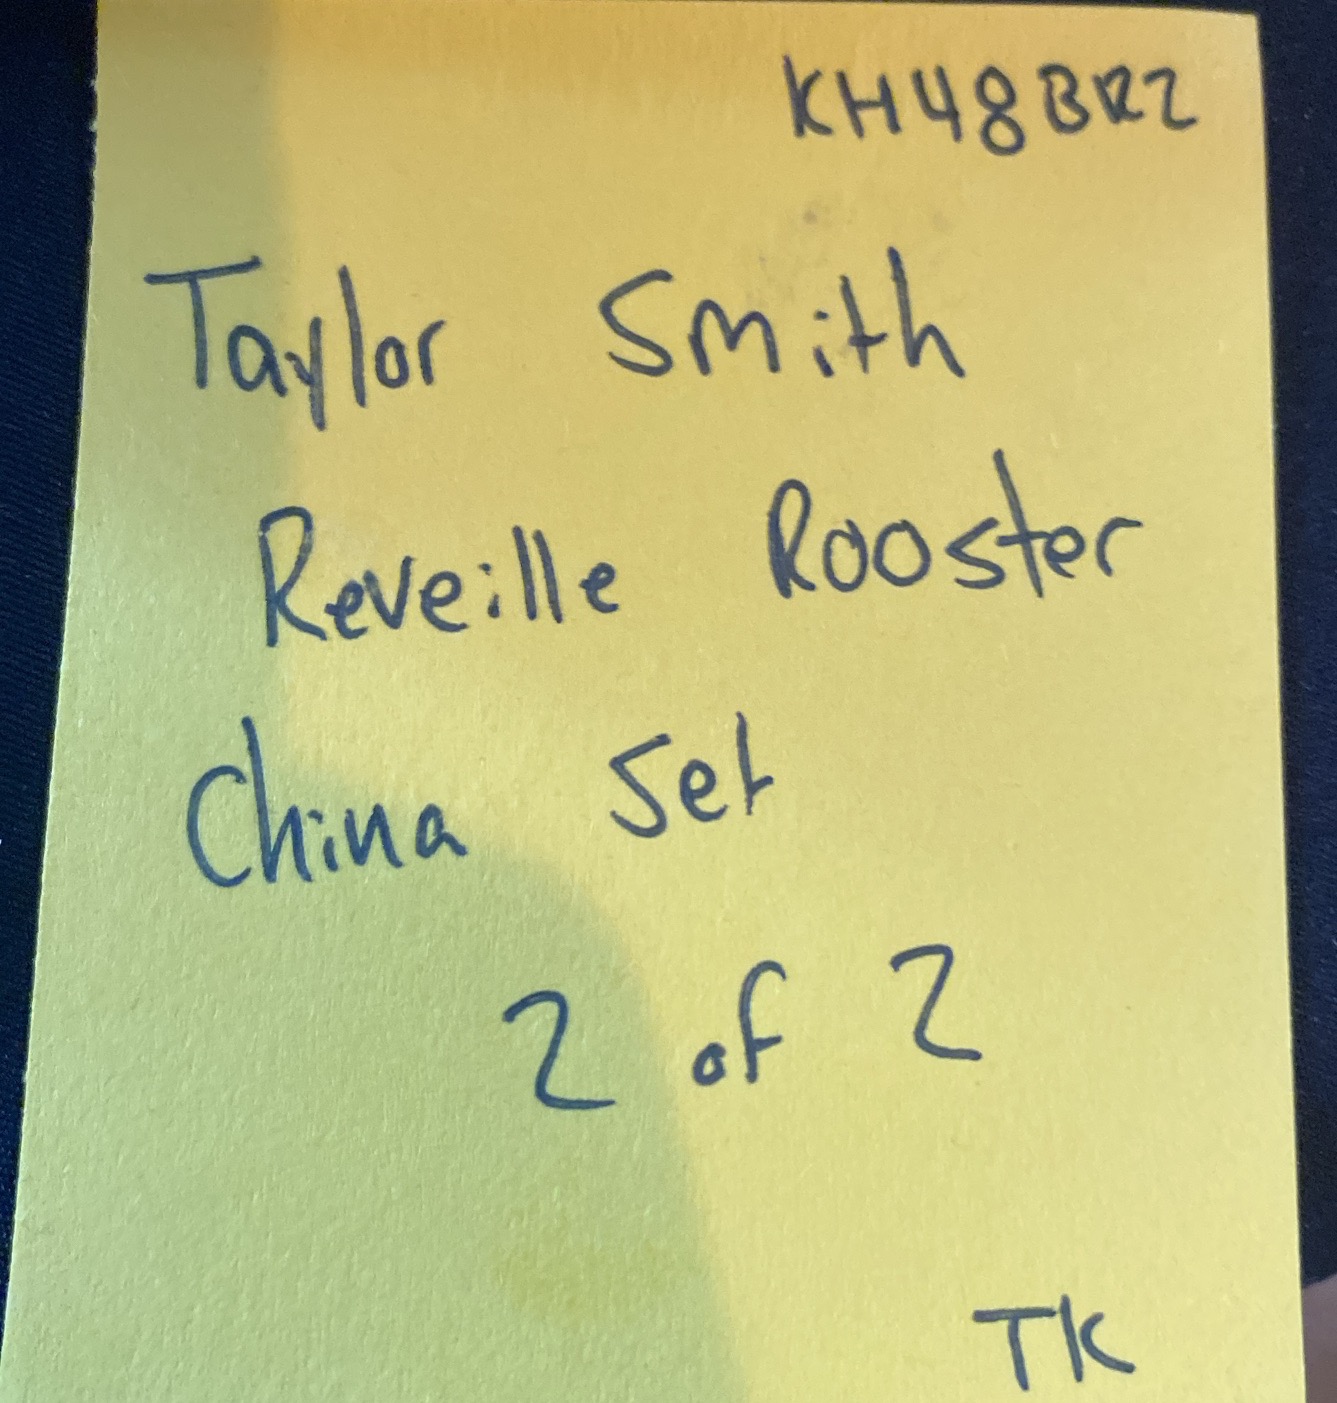 KH48BR2
Taylor Smith
Reveille Rooster
China Set
2 of 2
TK